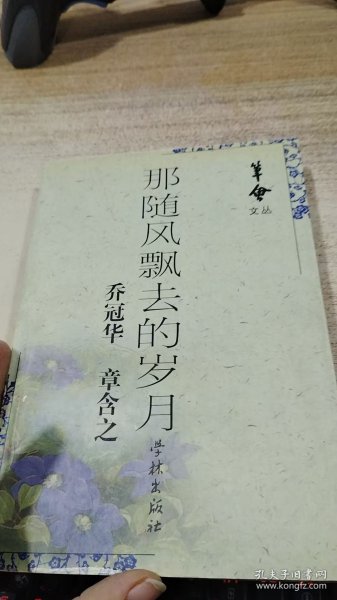 笔会
文丛
那随风飘去的岁月
乔冠华 章含之
学林出版社
孔夫子旧书网
www.kongfz.com